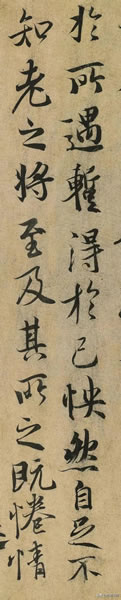 於所遇暫得於己怏然自足不
知老之將至及其所之既惓情